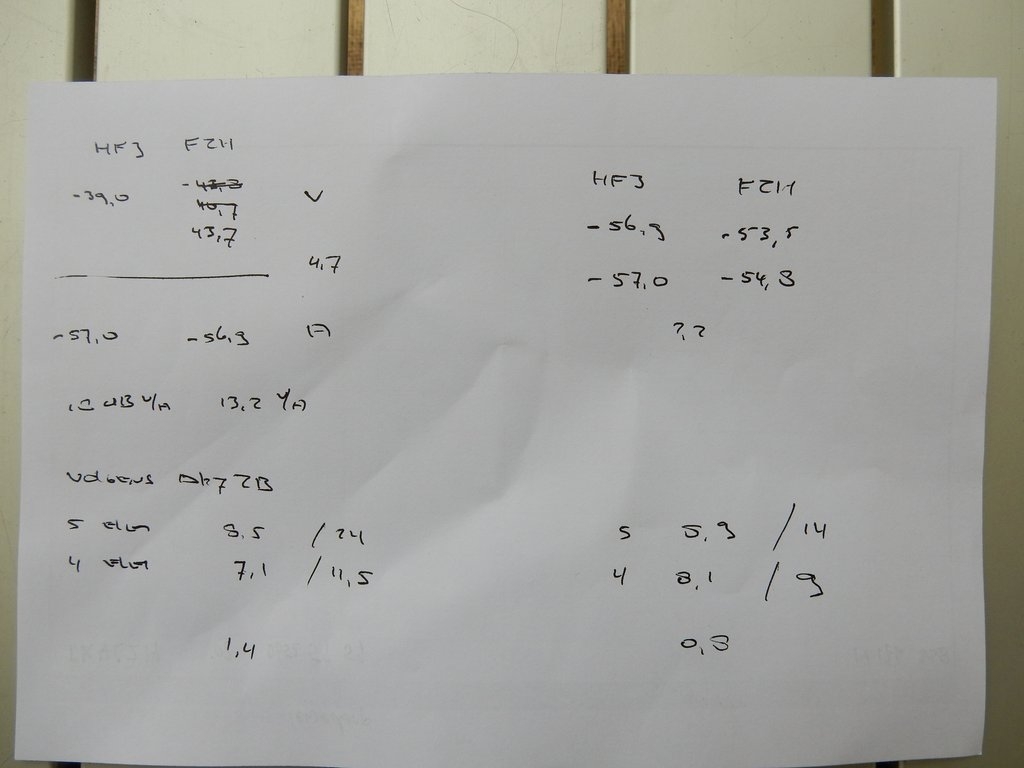 HF3 FZH
-39,0 -43,3 V
40,7
43,7
4,7
-57,0 -56,9 A
13,2 V/A
volgens DK7ZB
5 elem 8,5 / 24
4 elem 7,1 / 11,5
1,4
HF3 FZH
-56,9 -53,5
-57,0 -54,8
?,?
5 8,9 / 14
4 8,1 / 9
0,8